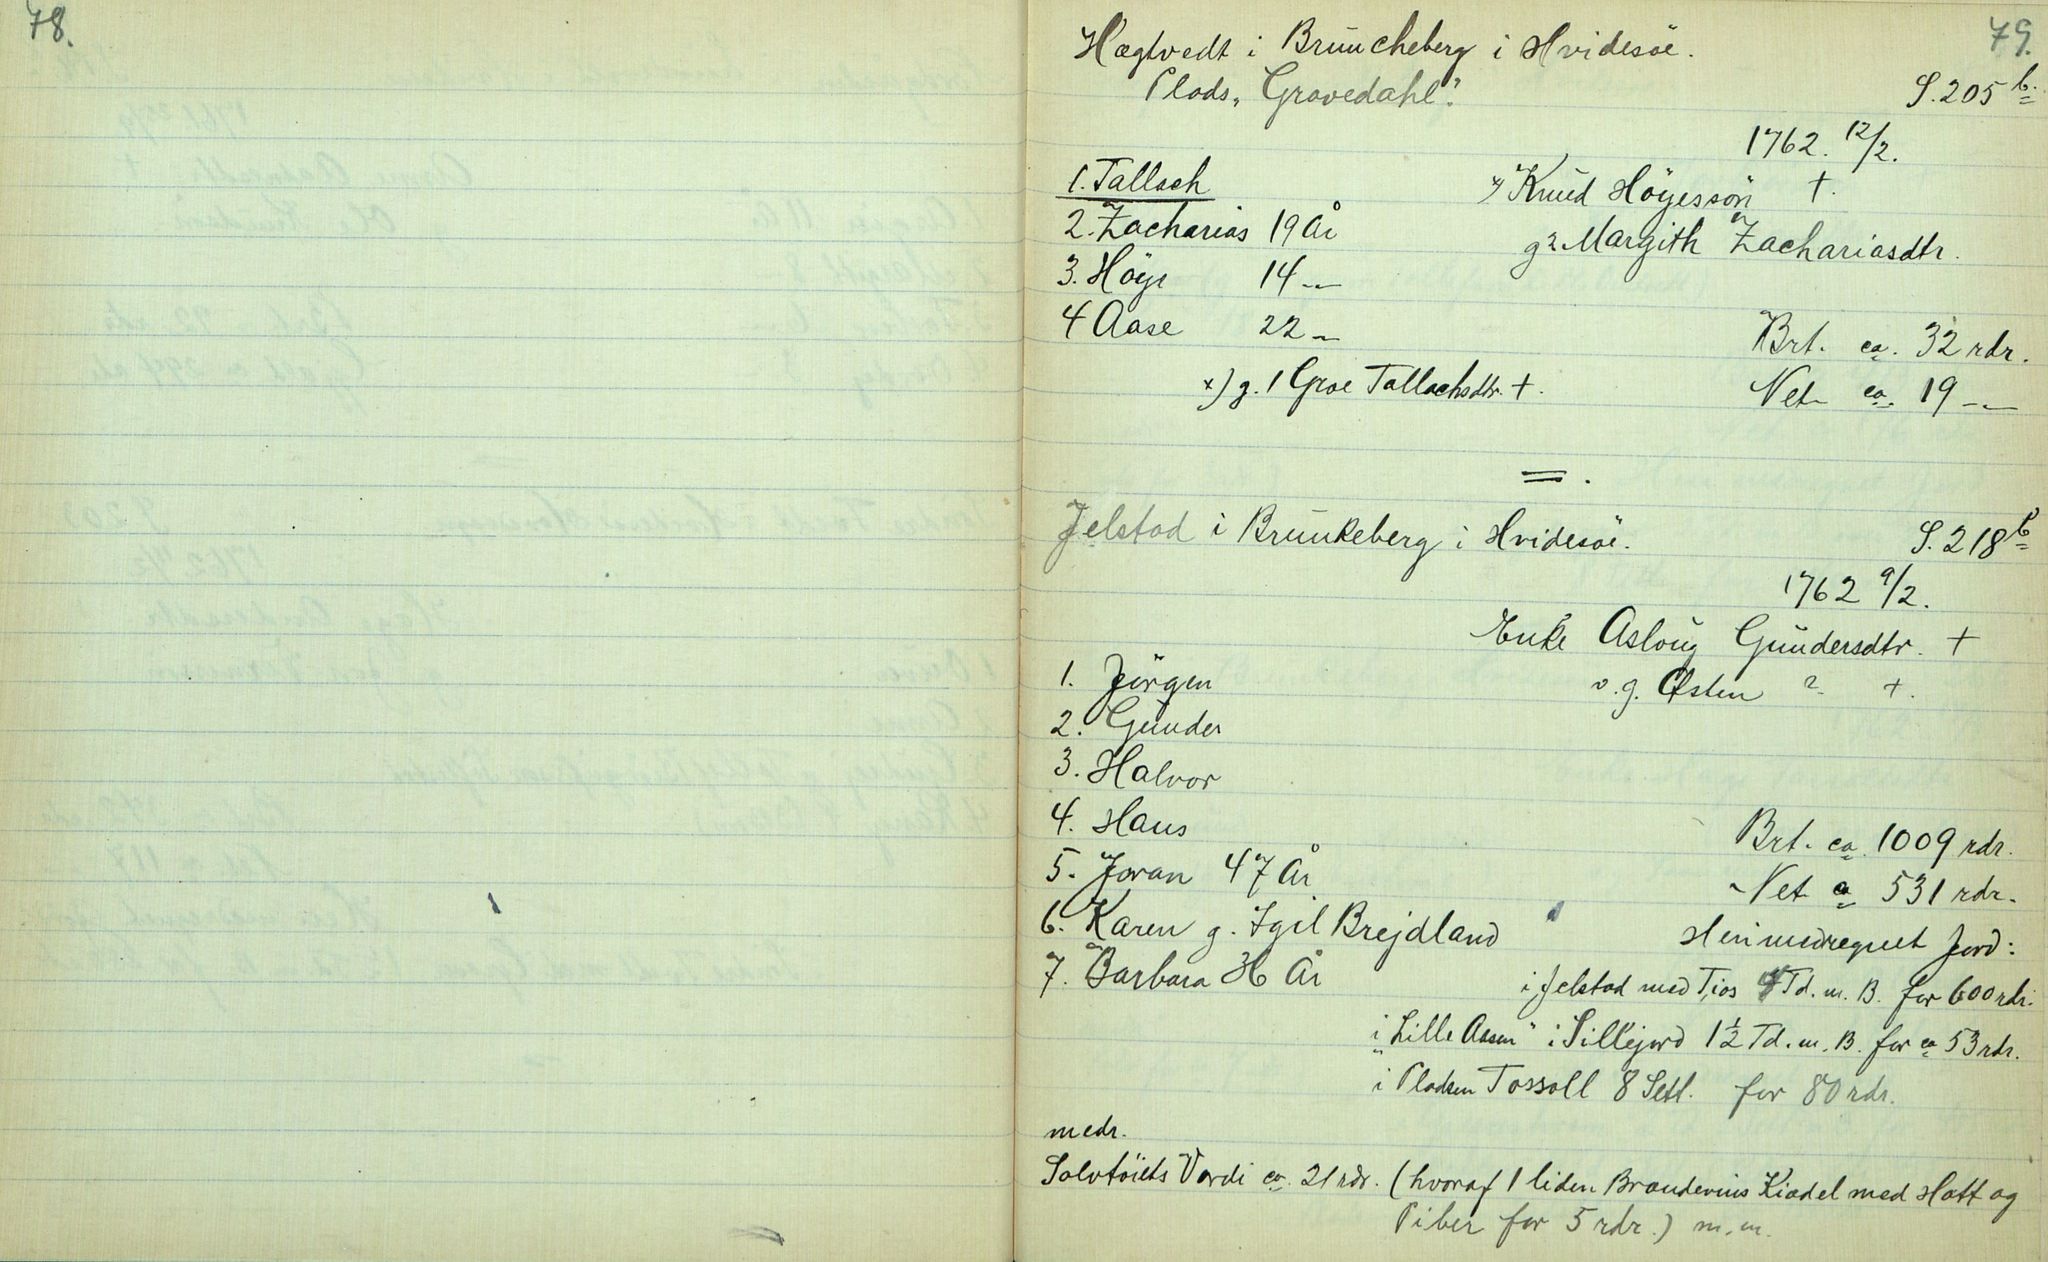 78.
79.
Hægtvedt i Bruncheberg i Hvidesöe.
Plads „Gravedahl".
S. 205 b.
1762. 12/2.
1. Tallach
x) Knud Höyessön †.
2. Zacharias 19 År
g 2 Margith Zachariasdtr.
3. Höye 14 —
4 Aase 22 —
Brt. ca. 32 rdr.
x) g. 1 Groe Tallachsdtr. †.
Net ca. 19 —
=.
Jelstad i Brunkeberg i Hvidesöe.
S. 218 b
1762 9/2.
Enke Asloug Gundersdtr. †
1. Jörgen
v. g. Østen ? †.
2. Gunder
3. Halvor
4. Hans
Brt. ca. 1009 rdr.
5. Joran 47 År
Net ca 531 rdr.
6. Karen g. Egil Brejdland
Heri medregnet Jord:
7. Barbara 36 År
i Jelstad med Tios Td. m. B. for 600 rdr.
i „Lille Aasen" i Sillejord 1½ Td. m. B. for ca 53 rdr.
i Pladsen Tossoll 8 Setl. for 80 rdr.
medr.
Solvtöiets Verdi ca. 21 rdr. (hvoraf 1 liden Brændeviins Kiædel med Hatt og
Piber for 5 rdr.) m. m.